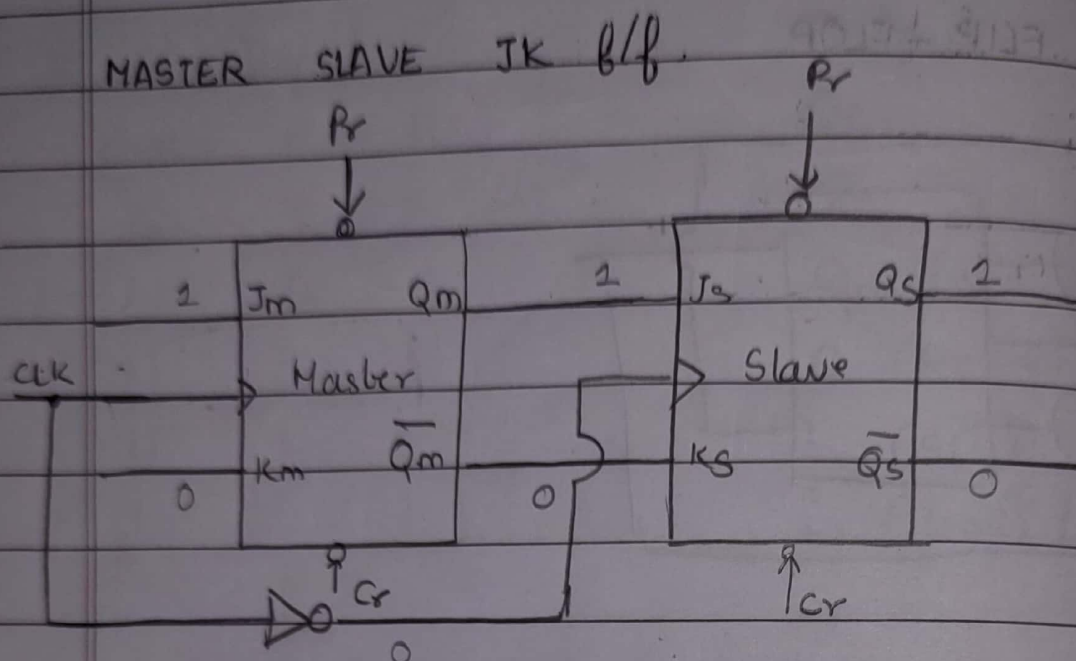 MASTER SLAVE JK f/f.
Pr Pr
1 Jm Qm 1 Js Qs 1
CLK Master Slave
0 Km Q̅m 0 Ks Q̅s 0
Cr Cr
0